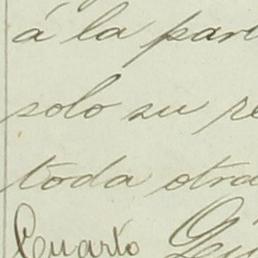 á la par
solo su re
toda otra
Cuarto